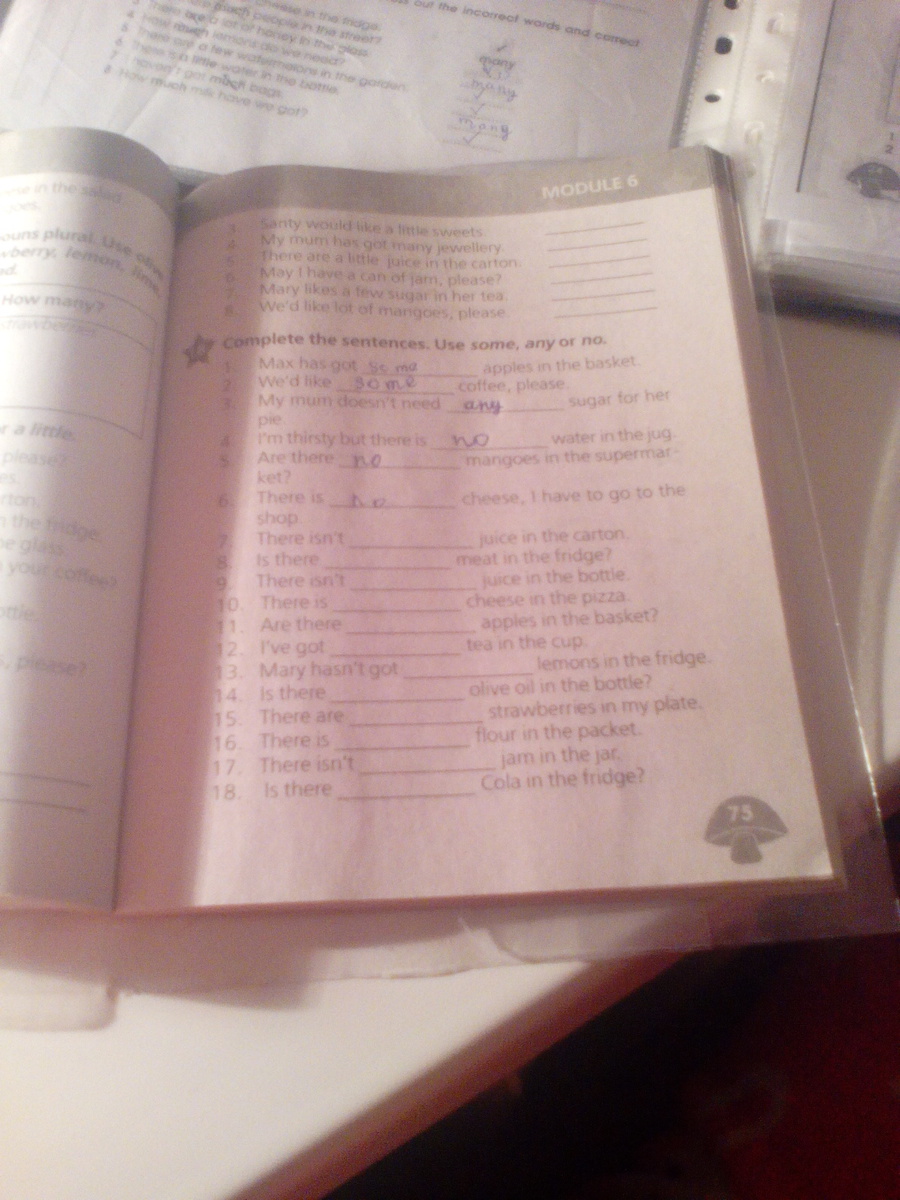 cheese in the fridge.
much people in the street?
There are a lot of honey in the glass.
How much lemons do we need?
There are a few watermelons in the garden.
There is a little water in the bottle.
I haven't got much bags.
8 How much milk have we got?
out the incorrect words and correct
many
many
many
MODULE 6
in the salad
ouns plural. Use olive,
wberry, lemon, lime,
ed.
How many?
strawberries
r a little.
please?
rton.
n the fridge.
e glass.
your coffee?
ottle.
, please?
3. Santy would like a little sweets.
4. My mum has got many jewellery.
5. There are a little juice in the carton.
6. May I have a can of jam, please?
7. Mary likes a few sugar in her tea.
8. We'd like lot of mangoes, please.
Complete the sentences. Use some, any or no.
1. Max has got some apples in the basket.
2. We'd like some coffee, please.
3. My mum doesn't need any sugar for her
pie.
4. I'm thirsty but there is no water in the jug.
5. Are there no mangoes in the supermar-
ket?
6. There is no cheese, I have to go to the
shop.
7. There isn't juice in the carton.
8. Is there meat in the fridge?
9. There isn't juice in the bottle.
10. There is cheese in the pizza.
11. Are there apples in the basket?
12. I've got tea in the cup.
13. Mary hasn't got lemons in the fridge.
14. Is there olive oil in the bottle?
15. There are strawberries in my plate.
16. There is flour in the packet.
17. There isn't jam in the jar.
18. Is there Cola in the fridge?
75
1
2